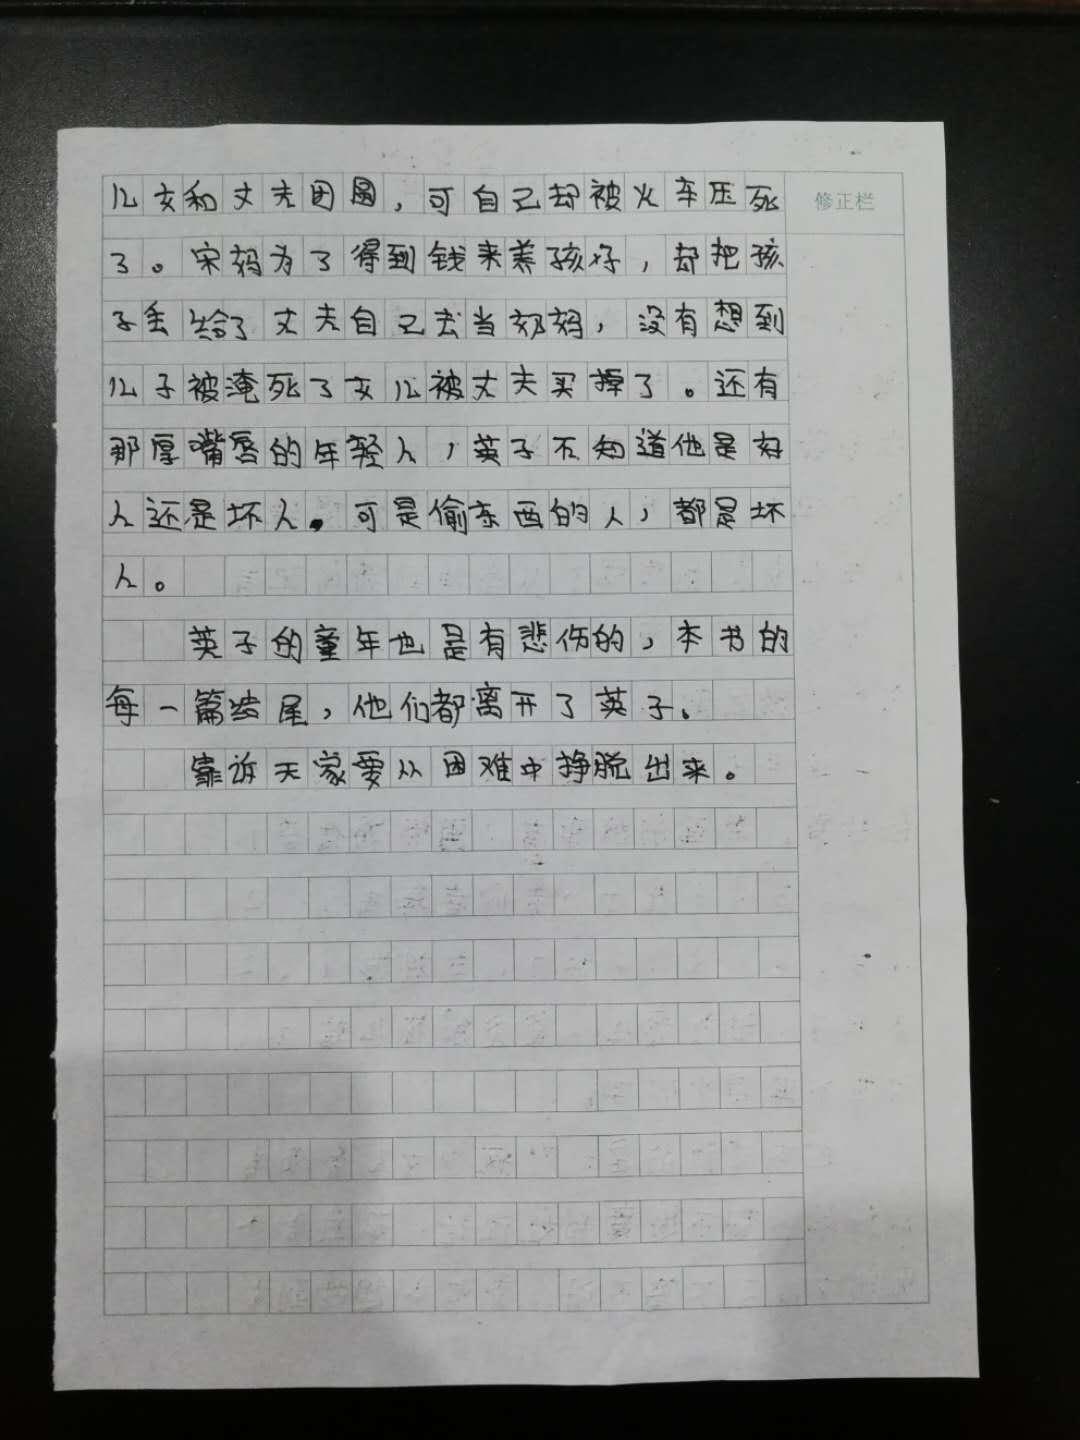 修正栏
儿女和丈夫团圆，可自己却被火车压死
了。宋妈为了得到钱来养孩好，却把孩
子丢给了丈夫自己去当奶妈，没有想到
儿子被淹死了女儿被丈夫买掉了。还有
那厚嘴唇的年轻人，英子不知道他是好
人还是坏人。可是偷东西的人，都是坏
人。
英子的童年也是有悲伤的，本书的
每一篇结尾，他们都离开了英子。
靠诉天家要从困难中挣脱出来。